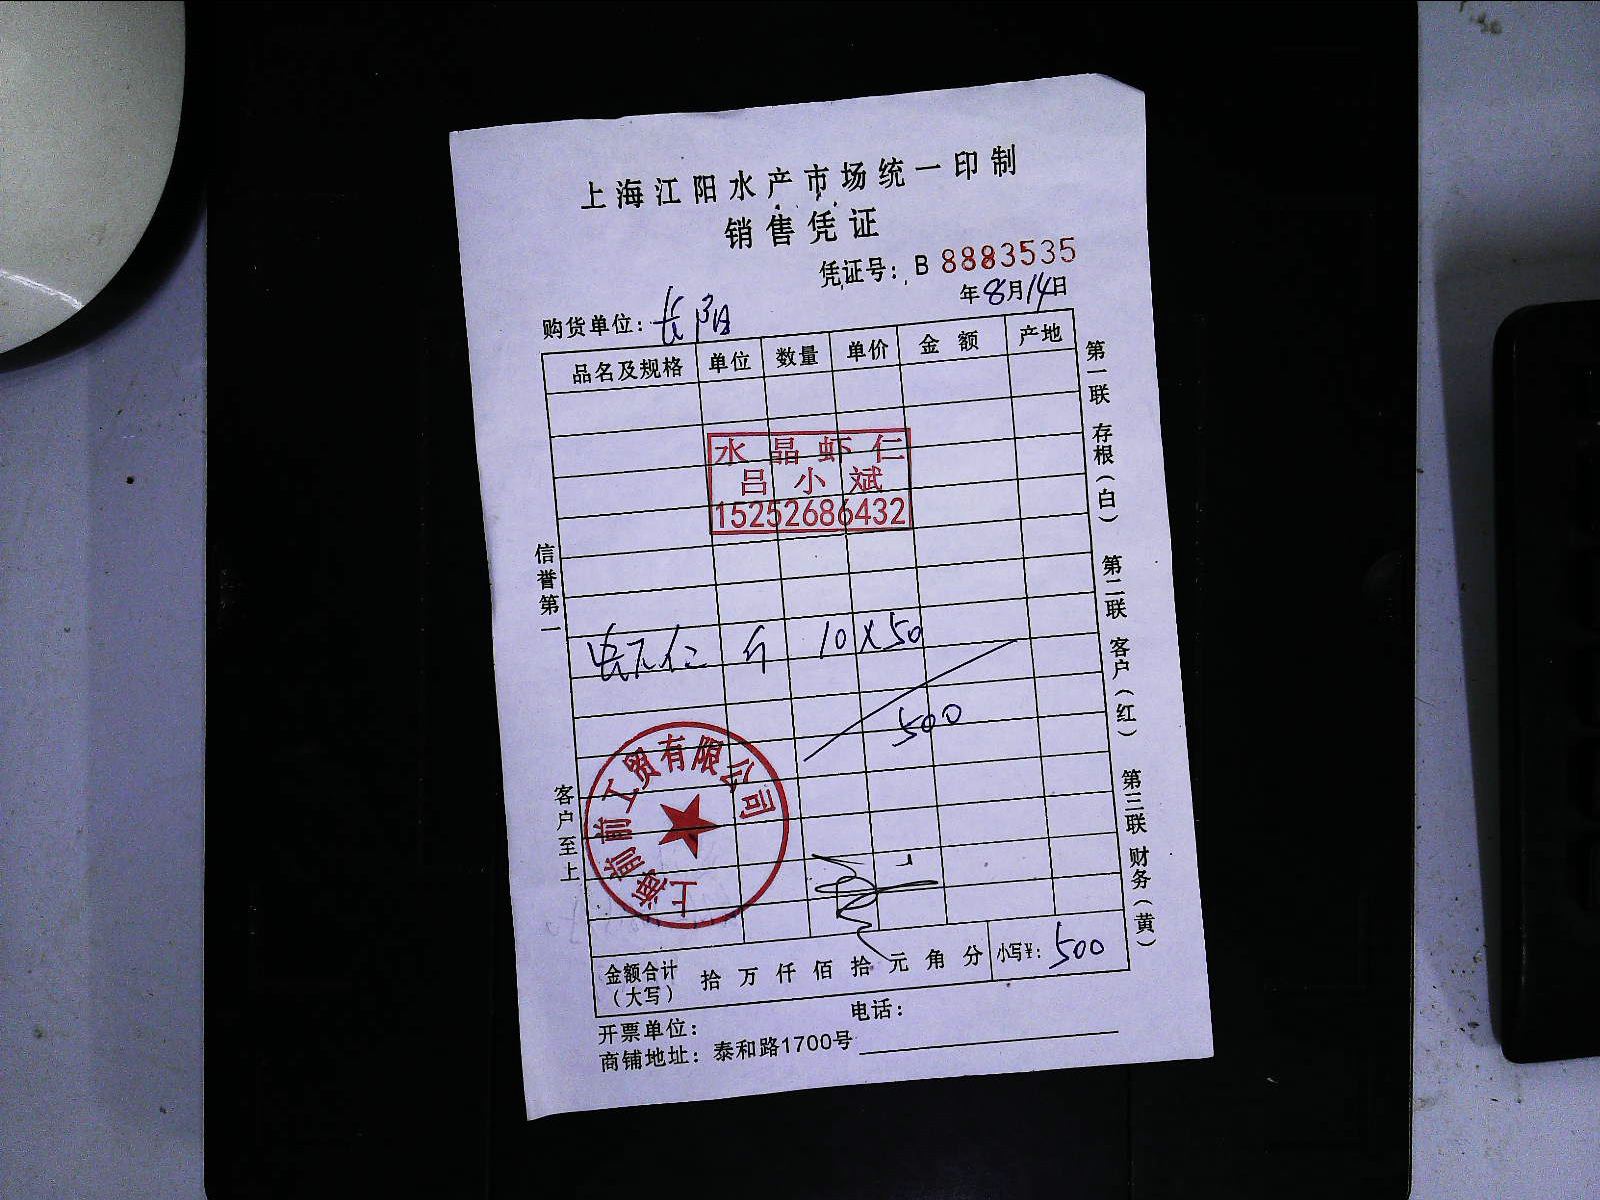 上海江阳水产市场统一印制
销售凭证
凭证号：B 8883535
年8月14日
购货单位：长阳
品名及规格 单位 数量 单价 金额 产地
水晶虾仁
吕小斌
15252686432
虾仁 斤 10×50
500
上海前前工贸有限公司
金额合计（大写） 拾 万 仟 佰 拾 元 角 分 小写¥：500
开票单位： 电话：
商铺地址：泰和路1700号
信誉第一
客户至上
第一联 存根（白） 第二联 客户（红） 第三联 财务（黄）